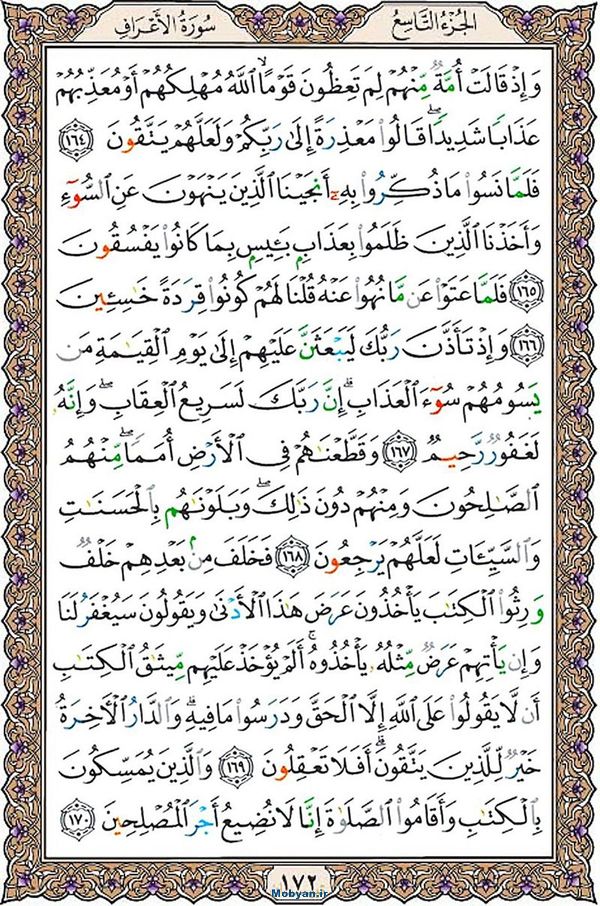 الجُزءُ التَّاسِعُ
سُورَةُ الأَعْرَافِ
وَإِذْ قَالَتْ أُمَّةٌ مِّنْهُمْ لِمَ تَعِظُونَ قَوْمًا ۙ اللَّهُ مُهْلِكُهُمْ أَوْ مُعَذِّبُهُمْ
عَذَابًا شَدِيدًا ۖ قَالُوا مَعْذِرَةً إِلَىٰ رَبِّكُمْ وَلَعَلَّهُمْ يَتَّقُونَ ١٦٤
فَلَمَّا نَسُوا مَا ذُكِّرُوا بِهِ أَنجَيْنَا الَّذِينَ يَنْهَوْنَ عَنِ السُّوءِ
وَأَخَذْنَا الَّذِينَ ظَلَمُوا بِعَذَابٍ بَئِيسٍ بِمَا كَانُوا يَفْسُقُونَ
١٦٥ فَلَمَّا عَتَوْا عَن مَّا نُهُوا عَنْهُ قُلْنَا لَهُمْ كُونُوا قِرَدَةً خَاسِئِينَ
١٦٦ وَإِذْ تَأَذَّنَ رَبُّكَ لَيَبْعَثَنَّ عَلَيْهِمْ إِلَىٰ يَوْمِ الْقِيَامَةِ مَن
يَسُومُهُمْ سُوءَ الْعَذَابِ ۗ إِنَّ رَبَّكَ لَسَرِيعُ الْعِقَابِ ۖ وَإِنَّهُ
لَغَفُورٌ رَّحِيمٌ ١٦٧ وَقَطَّعْنَاهُمْ فِي الْأَرْضِ أُمَمًا ۖ مِّنْهُمُ
الصَّالِحُونَ وَمِنْهُمْ دُونَ ذَٰلِكَ ۖ وَبَلَوْنَاهُم بِالْحَسَنَاتِ
وَالسَّيِّئَاتِ لَعَلَّهُمْ يَرْجِعُونَ ١٦٨ فَخَلَفَ مِن بَعْدِهِمْ خَلْفٌ
وَرِثُوا الْكِتَابَ يَأْخُذُونَ عَرَضَ هَٰذَا الْأَدْنَىٰ وَيَقُولُونَ سَيُغْفَرُ لَنَا
وَإِن يَأْتِهِمْ عَرَضٌ مِّثْلُهُ يَأْخُذُوهُ ۚ أَلَمْ يُؤْخَذْ عَلَيْهِم مِّيثَاقُ الْكِتَابِ
أَن لَّا يَقُولُوا عَلَى اللَّهِ إِلَّا الْحَقَّ وَدَرَسُوا مَا فِيهِ ۗ وَالدَّارُ الْآخِرَةُ
خَيْرٌ لِّلَّذِينَ يَتَّقُونَ ۗ أَفَلَا تَعْقِلُونَ ١٦٩ وَالَّذِينَ يُمَسِّكُونَ
بِالْكِتَابِ وَأَقَامُوا الصَّلَاةَ إِنَّا لَا نُضِيعُ أَجْرَ الْمُصْلِحِينَ ١٧٠
١٧٢
Mobyan.ir